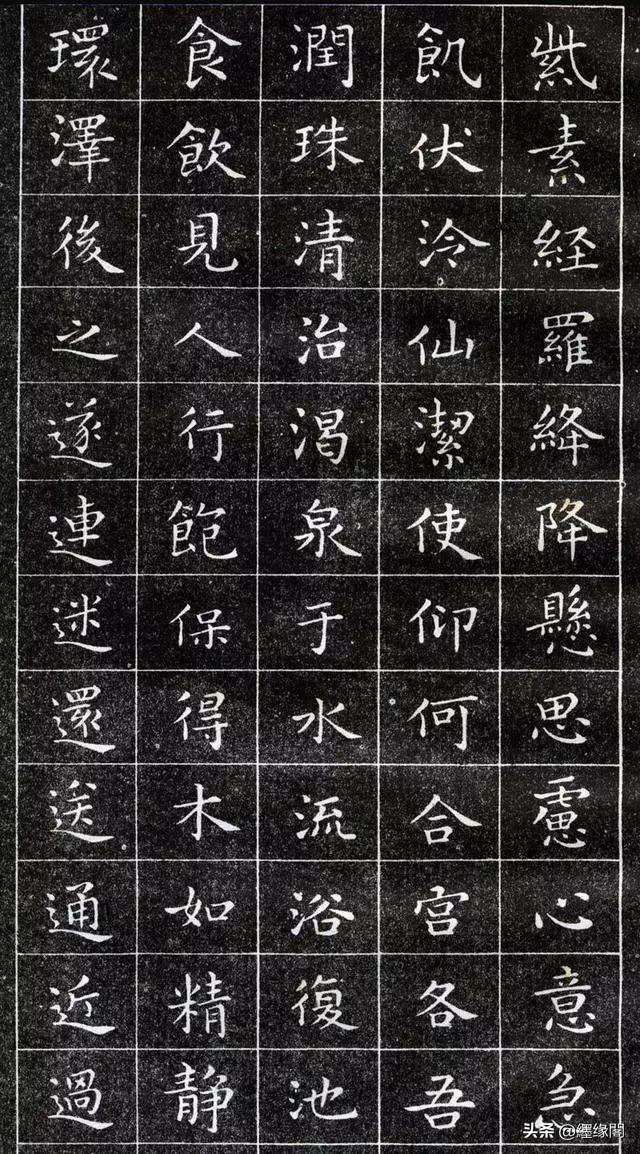 紫素経羅絳降懸思慮心意急
飢伏泠仙潔使仰何合宮各吾
潤珠清治渴泉于水流浴復池
食飲見人行飽保得木如精静
環澤後之遂連迷還送通近過
头条 @纒缘閣